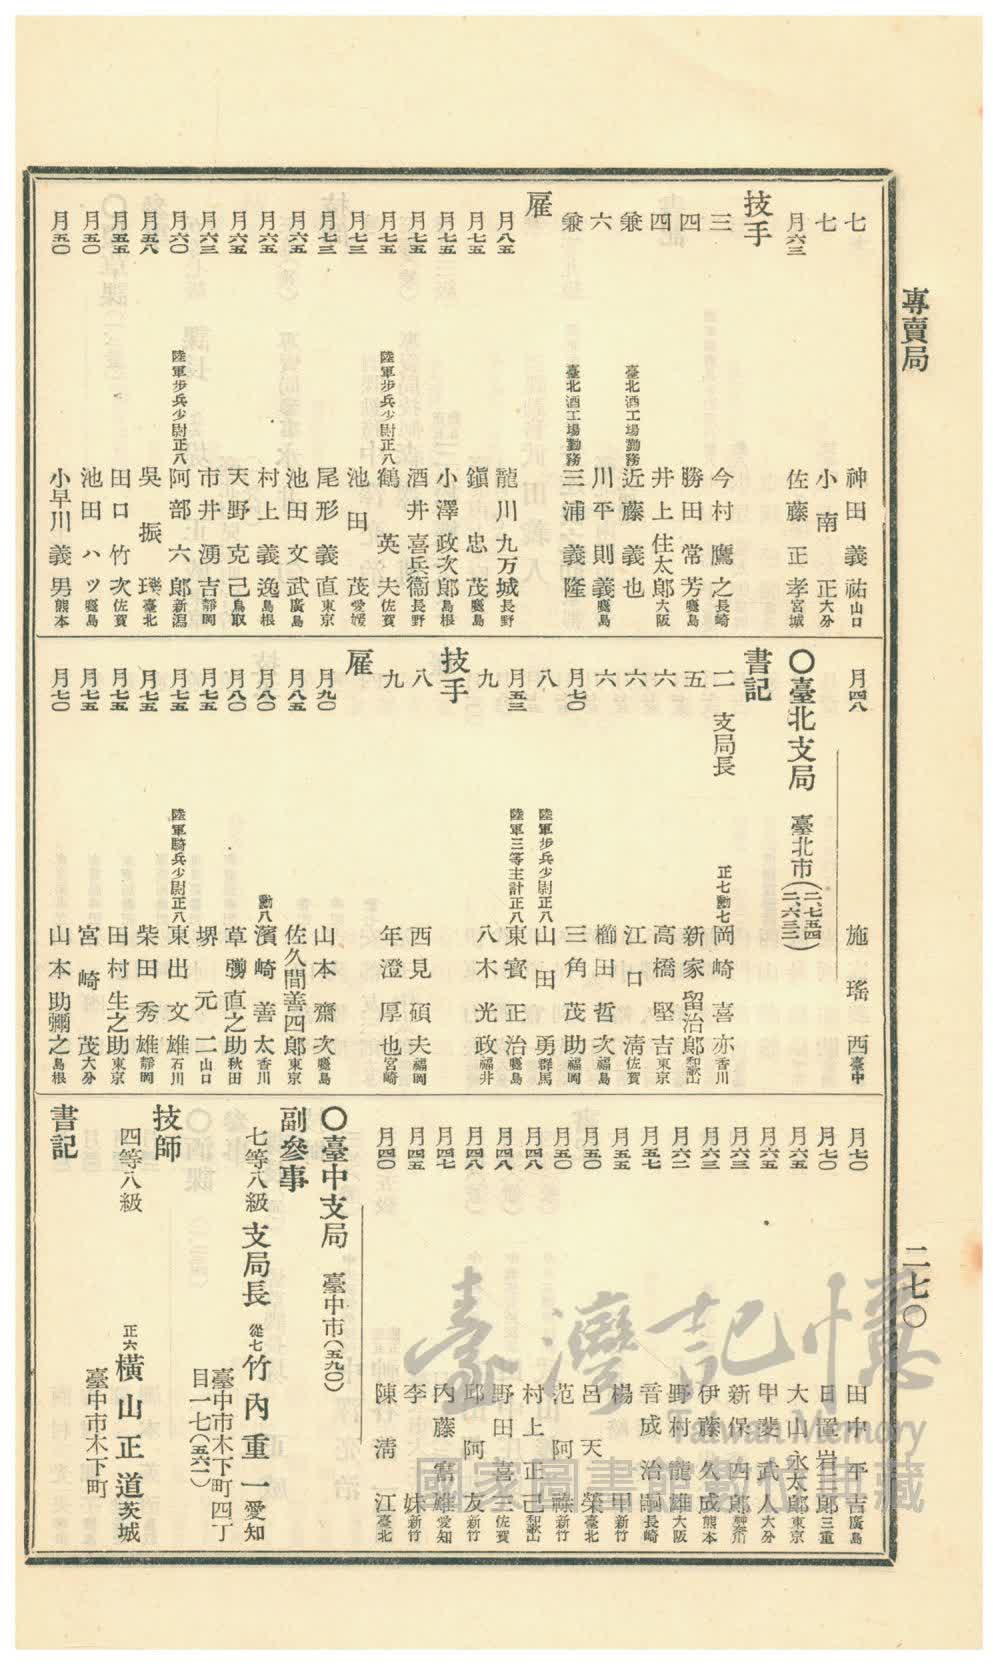 專賣局
二七〇
七 神田義祐 山口
七 小南正 大分
月六三 佐藤正孝 宮城
技手
三 今村鷹之 長崎
四 勝田常芳 鹿島
四 井上住太郎 大阪
兼 臺北酒工場勤務 近藤義也
六 川平則義 鹿島
兼 臺北酒工場勤務 三浦義隆
雇
月八五 龍川九万城 長野
月七五 鎭忠茂 鹿島
月七五 小澤政次郎 島根
月七五 酒井喜兵衞 長野
月七五 陸軍步兵少尉正八 鶴英夫 佐賀
月七三 池田茂 愛媛
月七三 尾形義直 東京
月六五 池田文武 廣島
月六五 村上義逸 島根
月六五 天野克己 鳥取
月六三 市井湧吉 靜岡
月六〇 陸軍步兵少尉正八 阿部六郎 新潟
月五八 吳振 臺北
月五五 田口竹次 佐賀
月五〇 池田ハツ 鹿島
月五〇 小早川義男 熊本
月四八 施瑤西 臺中
〇臺北支局 臺北市(二、七五四 二、六三三)
書記
二 支局長 正七勳七 岡崎喜亦 香川
五 新家留治郎 和歌山
六 高橋堅吉 東京
六 江口清 佐賀
六 櫛田哲次 福島
月七〇 三角茂助 福岡
八 陸軍步兵少尉正八 山田勇 群馬
月五三 陸軍三等主計正八 東實正治 鹿島
九 八木光政 福井
技手
八 西見碩夫 福岡
九 年澄厚也 宮崎
雇
月九〇 山本齋次 鹿島
月八五 佐久間善四郎 東京
月八〇 勳八 濱崎善太 香川
月八〇 草彅直之助 秋田
月七五 堺元二 山口
月七五 陸軍騎兵少尉正八 東出文雄 石川
月七五 柴田秀雄 靜岡
月七五 田村生之助 東京
月七五 宮崎茂 大分
月七〇 山本助彌之 島根
月七〇 田中平吉 廣島
月七〇 日置岩三郎 三重
月六五 大山永太郎 東京
月六五 甲斐武人 大分
月六三 新保四郎 神奈川
月六三 伊藤久成 熊本
月六二 野村龍雄 大阪
月五七 音成治嗣 長崎
月五五 楊甲 新竹
月五〇 呂天榮 臺北
月五〇 范阿祿 新竹
月四八 村上正己 和歌山
月四八 野田喜三 佐賀
月四八 邱阿友 新竹
月四七 內藤富雄 愛知
月四五 李妹 新竹
月四〇 陳清江 臺北
〇臺中支局 臺中市(五九〇)
副參事
七等八級 支局長 從七 竹內重一 愛知
臺中市木下町四丁
目一七(五六一)
技師
四等八級 正六 橫山正道 茨城
臺中市木下町
書記
臺灣記憶
Taiwan Memory
國家圖書館數位典藏